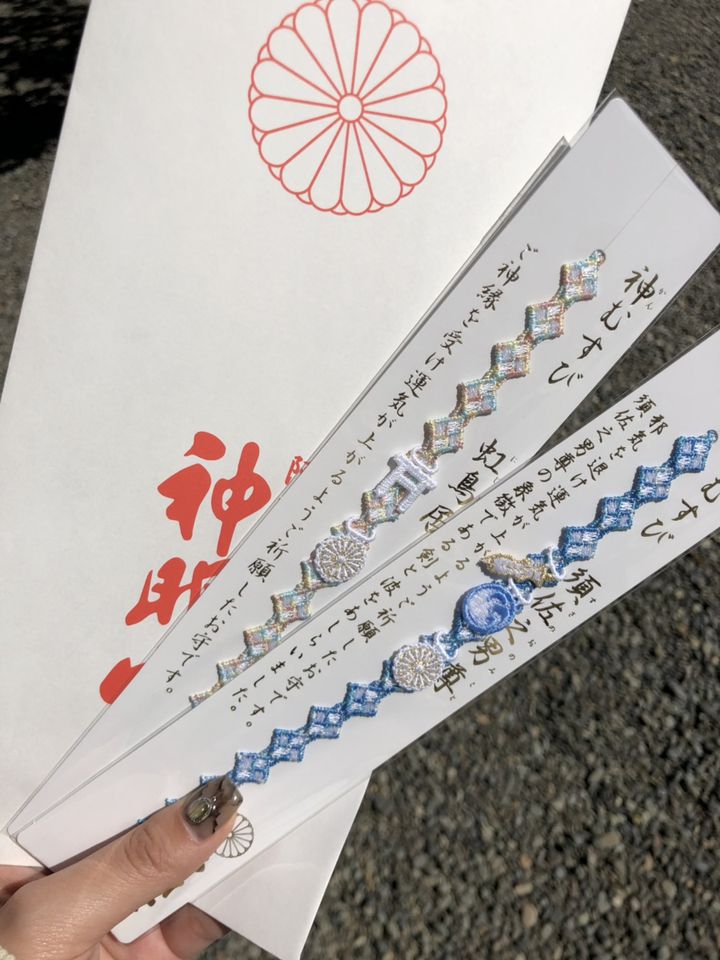 神むすび
虹鳥居
ご神縁を受け運気が上がるようご祈願したお守です。
むすび
須佐之男尊
邪気を退け運気が上がるようご祈願したお守です。
須佐之男尊の象徴である剣と波をあしらいました。
神